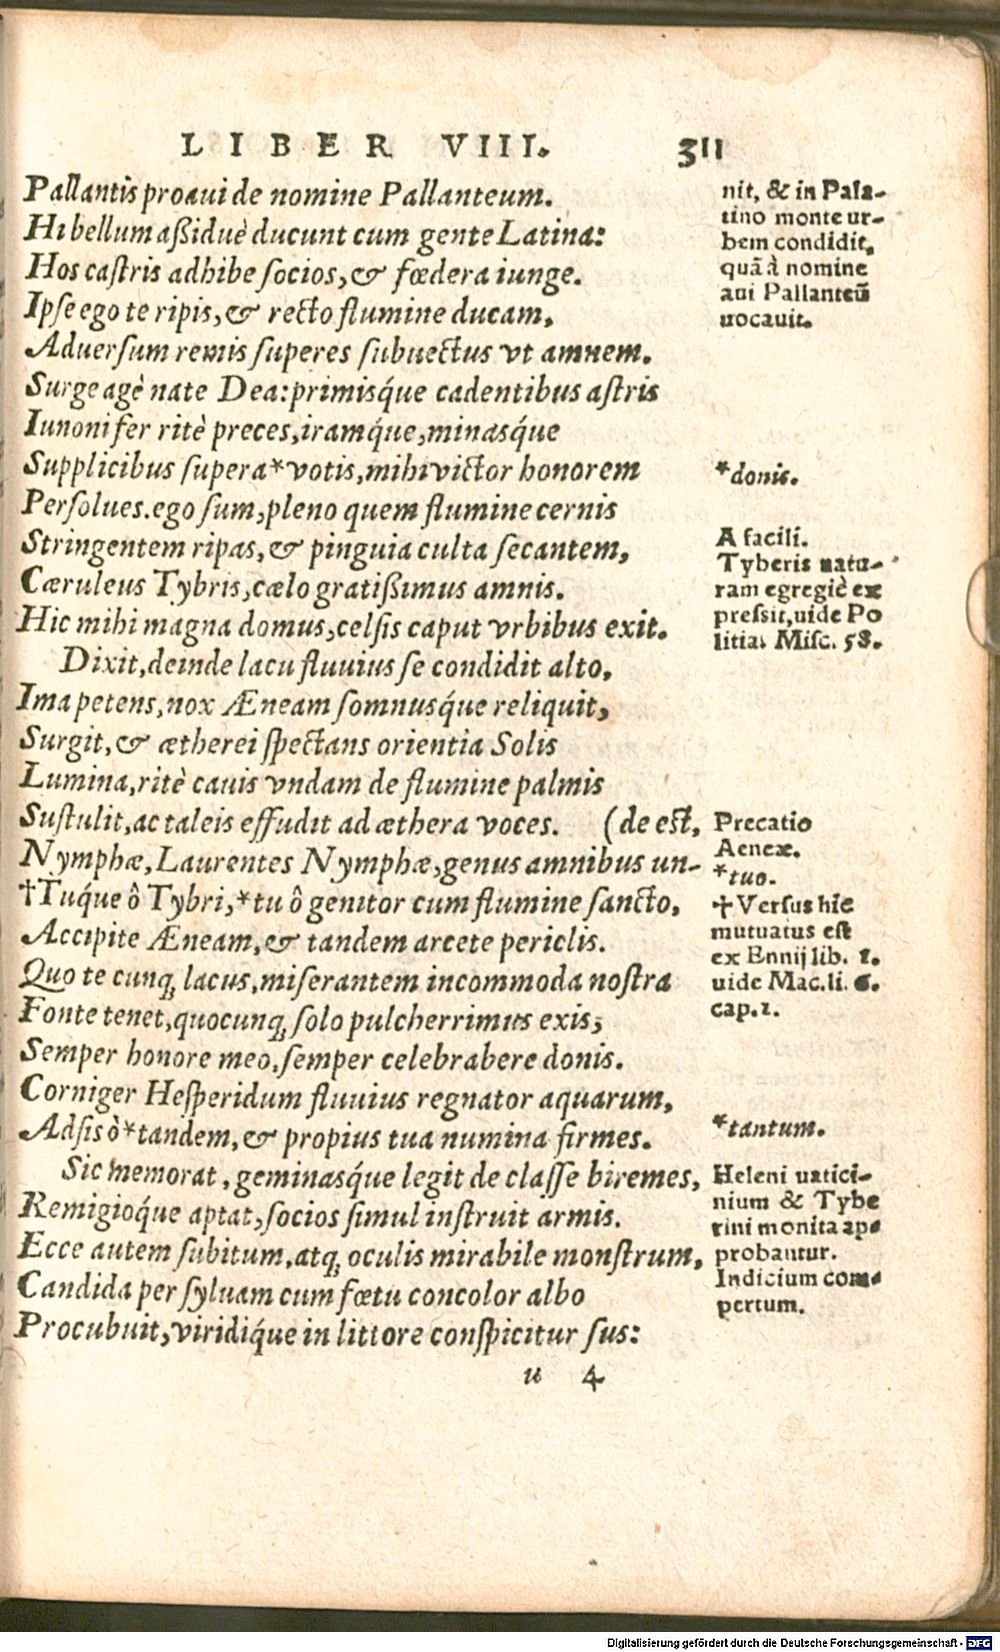 LIBER VIII. 311
Pallantis proaui de nomine Pallanteum.
Hi bellum aßiduè ducunt cum gente Latina:
Hos castris adhibe socios, & fœdera iunge.
Ipse ego te ripis, & recto flumine ducam,
Aduersum remis superes subuectus vt amnem.
Surge agè nate Dea: primisq́ue cadentibus astris
Iunoni fer ritè preces, iramq́ue, minasq́ue
Supplicibus supera * votis, mihi victor honorem
Persolues. ego sum, pleno quem flumine cernis
Stringentem ripas, & pinguia culta secantem,
Cæruleus Tybris, cælo gratißimus amnis.
Hic mihi magna domus, celsis caput vrbibus exit.
Dixit, deinde lacu fluuius se condidit alto,
Ima petens, nox Æneam somnusq́ue reliquit,
Surgit, & ætherei spectans orientia Solis
Lumina, ritè cauis vndam de flumine palmis
Sustulit, ac taleis effudit ad æthera voces. (de est,
Nymphæ, Laurentes Nymphæ, genus amnibus un-
†Tuq́ue ô Tybri, * tu ô genitor cum flumine sancto,
Accipite Æneam, & tandem arcete periclis.
Quo te cunq; lacus, miserantem incommoda nostra
Fonte tenet, quocunq; solo pulcherrimus exis,
Semper honore meo, semper celebrabere donis.
Corniger Hesperidum fluuius regnator aquarum,
Adsis ò * tandem, & propius tua numina firmes.
Sic memorat, geminasq́ue legit de classe biremes,
Remigioq́ue aptat, socios simul instruit armis.
Ecce autem subitum, atq; oculis mirabile monstrum,
Candida per syluam cum fœtu concolor albo
Procubuit, viridiq́ue in littore conspicitur sus:
u 4
nit, & in Pala-
tino monte ur-
bem condidit,
quã à nomine
aui Pallanteũ
uocauit.
*donis.
A facili.
Tyberis natu-
ram egregiè ex
pressit, uide Po
litia. Misc. 58.
Precatio
Aeneæ.
*tuo.
†Versus hic
mutuatus est
ex Ennij lib. 1.
uide Mac. li. 6.
cap. 1.
*tantum.
Heleni uatici-
nium & Tybe
rini monita ap-
probantur.
Indicium com-
pertum.
Digitalisierung gefördert durch die Deutsche Forschungsgemeinschaft - DFG